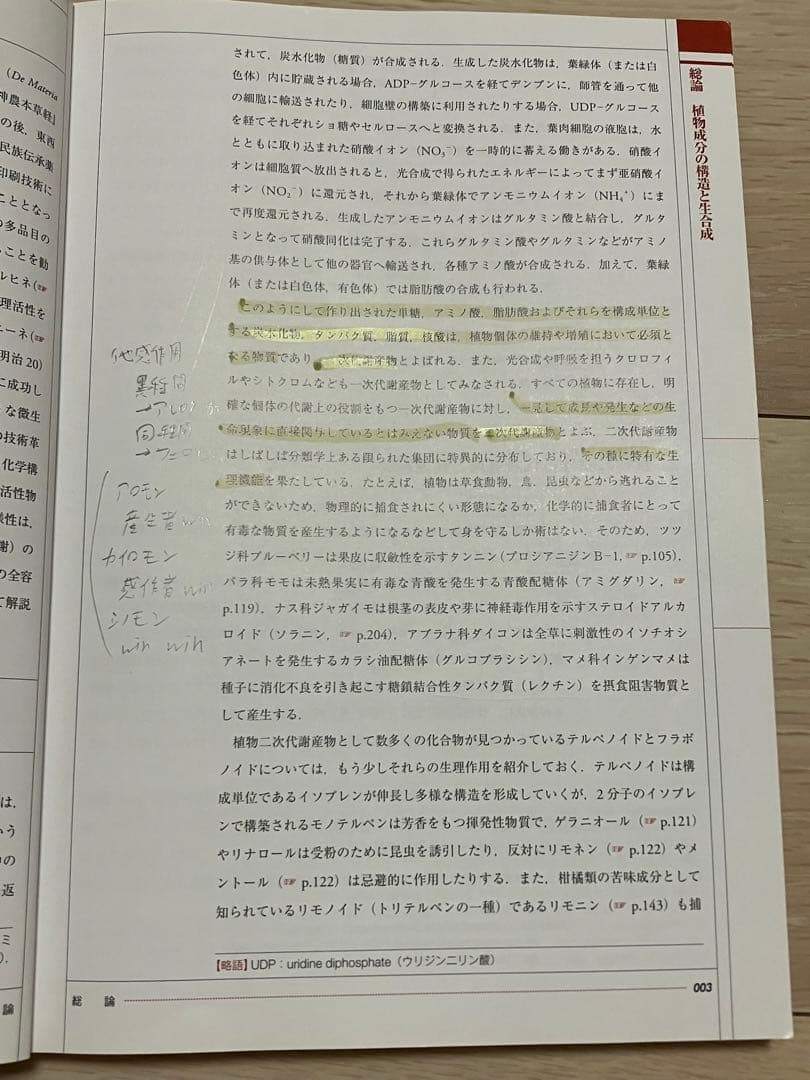 (De Materia
神農本草経』
の後，東西
民族伝承薬
印刷技術に
こととなっ
の多品目の
ることを勧
ルヒネ(☞
理活性を
ニーネ(☞
明治20)
に成功し
な微生
の技術革
化学構
活性物
様性は，
謝）の
の全容
て解説
は，
いう
中の
返
ミ
).
論
総論 植物成分の構造と生合成
されて，炭水化物（糖質）が合成される．生成した炭水化物は，葉緑体（または白
色体）内に貯蔵される場合，ADP-グルコースを経てデンプンに，師管を通って他
の細胞に輸送されたり，細胞壁の構築に利用されたりする場合，UDP-グルコース
を経てそれぞれショ糖やセルロースへと変換される．また，葉肉細胞の液胞は，水
とともに取り込まれた硝酸イオン（NO₃⁻）を一時的に蓄える働きがある．硝酸イ
オンは細胞質へ放出されると，光合成で得られたエネルギーによってまず亜硝酸イ
オン（NO₂⁻）に還元され，それから葉緑体でアンモニウムイオン（NH₄⁺）にま
で再度還元される．生成したアンモニウムイオンはグルタミン酸と結合し，グルタ
ミンとなって硝酸同化は完了する．これらグルタミン酸やグルタミンなどがアミノ
基の供与体として他の器官へ輸送され，各種アミノ酸が合成される．加えて，葉緑
体（または白色体，有色体）では脂肪酸の合成も行われる．
このようにして作り出された単糖，アミノ酸，脂肪酸およびそれらを構成単位と
する炭水化物，タンパク質，脂質，核酸は，植物個体の維持や増殖において必須と
なる物質であり，一次代謝産物とよばれる．また，光合成や呼吸を担うクロロフィ
ルやシトクロムなども一次代謝産物としてみなされる．すべての植物に存在し，明
確な個体の代謝上の役割をもつ一次代謝産物に対し，一見して成長や発生などの生
命現象に直接関与しているとはみえない物質を二次代謝産物とよぶ．二次代謝産物
はしばしば分類学上ある限られた集団に特異的に分布しており，その種に特有な生
理機能を果たしている．たとえば，植物は草食動物，鳥，昆虫などから逃れること
ができないため，物理的に捕食されにくい形態になるか，化学的に捕食者にとって
有毒な物質を産生するようになるなどして身を守るしか術はない．そのため，ツツ
ジ科ブルーベリーは果皮に収斂性を示すタンニン（プロシアニジンB-1，☞ p.105），
バラ科モモは未熟果実に有毒な青酸を発生する青酸配糖体（アミグダリン，☞
p.119），ナス科ジャガイモは根茎の表皮や芽に神経毒作用を示すステロイドアルカ
ロイド（ソラニン，☞ p.204），アブラナ科ダイコンは全草に刺激性のイソチオシ
アネートを発生するカラシ油配糖体（グルコブラシシン），マメ科インゲンマメは
種子に消化不良を引き起こす糖鎖結合性タンパク質（レクチン）を摂食阻害物質と
して産生する．
植物二次代謝産物として数多くの化合物が見つかっているテルペノイドとフラボ
ノイドについては，もう少しそれらの生理作用を紹介しておく．テルペノイドは構
成単位であるイソプレンが伸長し多様な構造を形成していくが，2分子のイソプレ
ンで構築されるモノテルペンは芳香をもつ揮発性物質で，ゲラニオール（☞ p.121）
やリナロールは受粉のために昆虫を誘引したり，反対にリモネン（☞ p.122）やメ
ントール（☞ p.122）は忌避的に作用したりする．また，柑橘類の苦味成分として
知られているリモノイド（トリテルペンの一種）であるリモニン（☞ p.143）も捕
他感作用
異種間
同種間
アロモン
産生者win
カイロモン
感作者win
シノモン
win win
【略語】UDP：uridine diphosphate（ウリジン二リン酸）
総 論 003